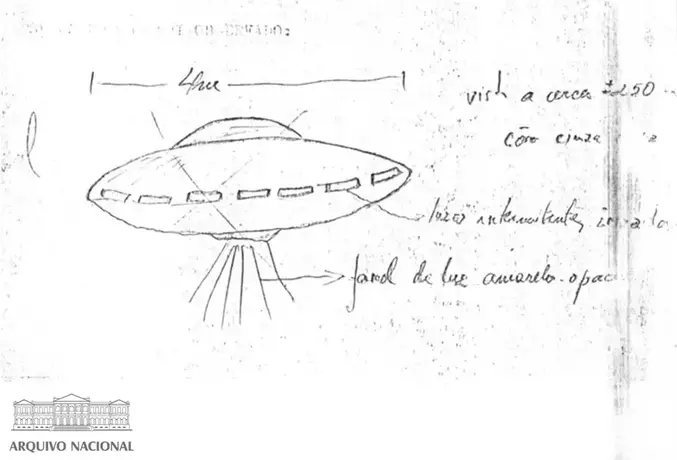 4m
visto a cerca ±250
côr cinza
luzes intermitentes
farol de luz amarelo opac
ARQUIVO NACIONAL